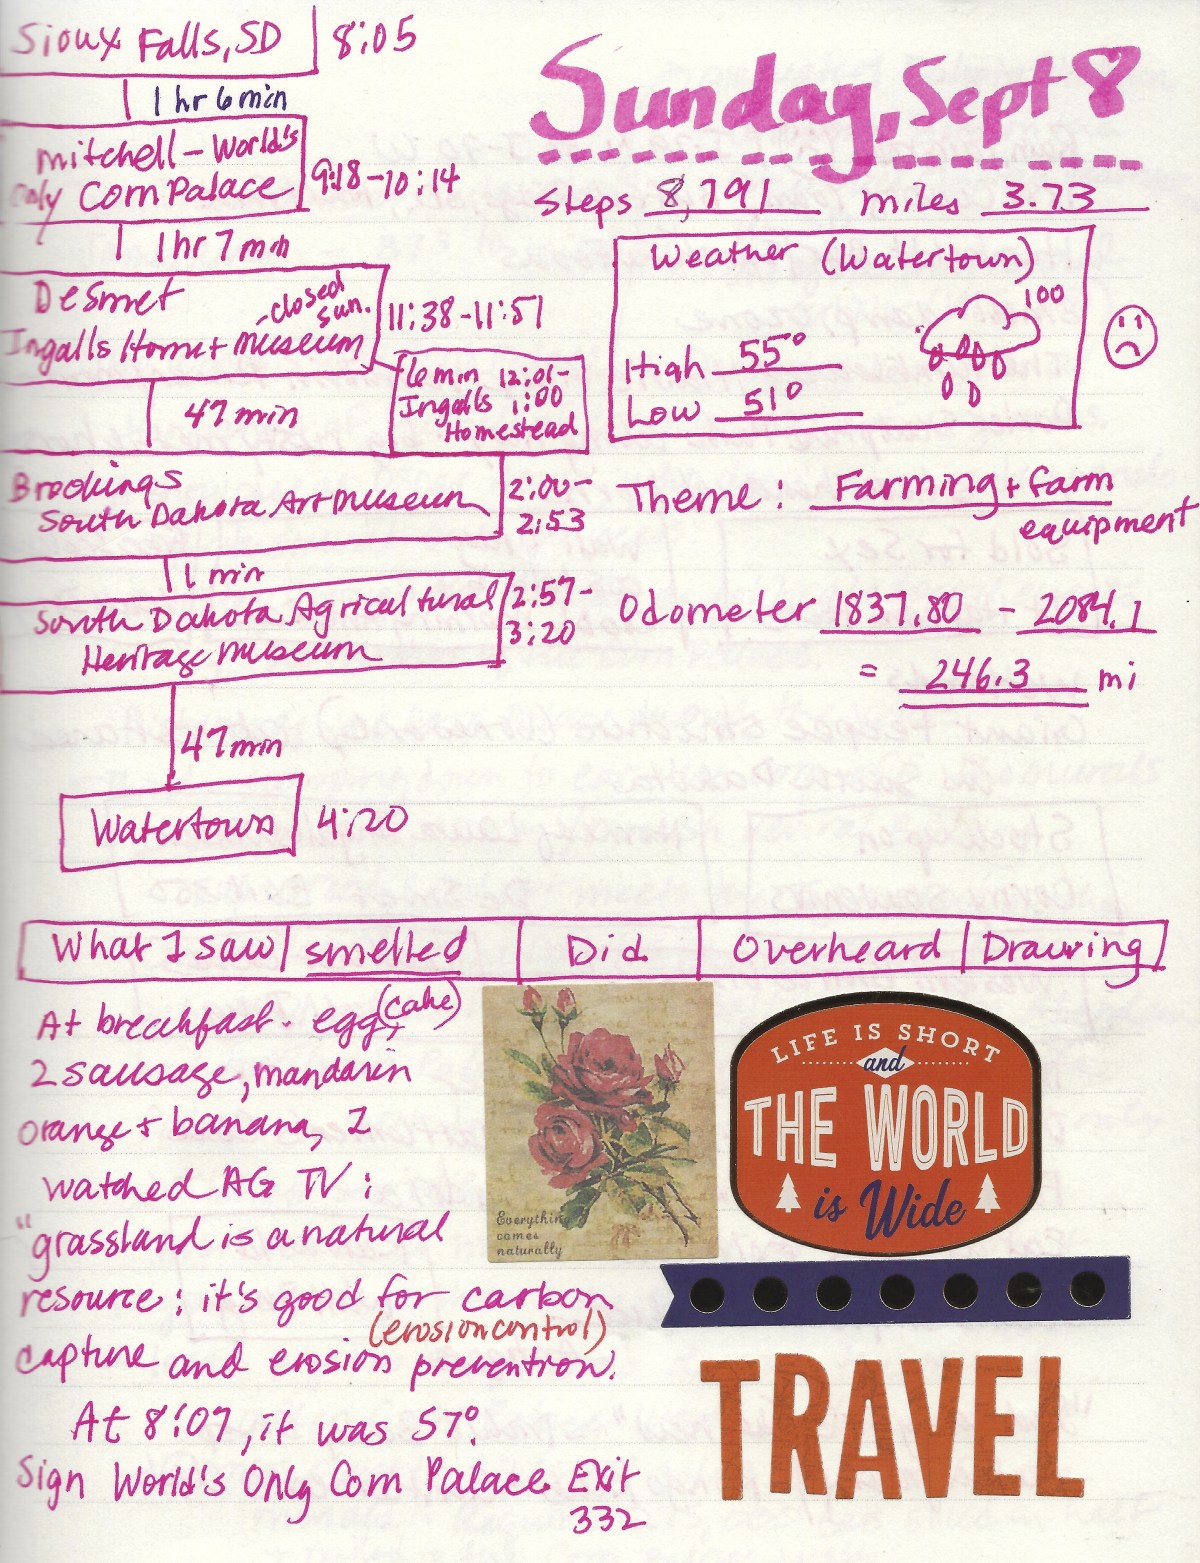 Sioux Falls, SD 8:05
1 hr 6 min
Mitchell - World's
Only Corn Palace 9:18-10:14
1 hr 7 min
DeSmet - closed Sun.
Ingalls Home + Museum 11:38-11:51
6 min 12:01-
Ingalls 1:00
Homestead
47 min
Brookings
South Dakota Art Museum 2:00-
2:53
1 min
South Dakota Agricultural
Heritage Museum 2:57-
3:20
47 min
Watertown 4:20
Sunday, Sept 8
Steps 8,791 miles 3.73
Weather (Watertown)
100
High 55°
Low 51°
Theme: Farming + farm
equipment
Odometer 1837.80 - 2084.1
= 246.3 mi
What I saw smelled Did Overheard Drawing
At breakfast - egg (cake),
2 sausage, mandarin
orange + banana, I
watched AG TV:
"grassland is a natural
resource: it's good for carbon
(erosion control)
capture and erosion prevention.
At 8:07, it was 57°.
Sign World's Only Corn Palace Exit
332
Everything
comes
naturally
LIFE IS SHORT
and
THE WORLD
is Wide
TRAVEL